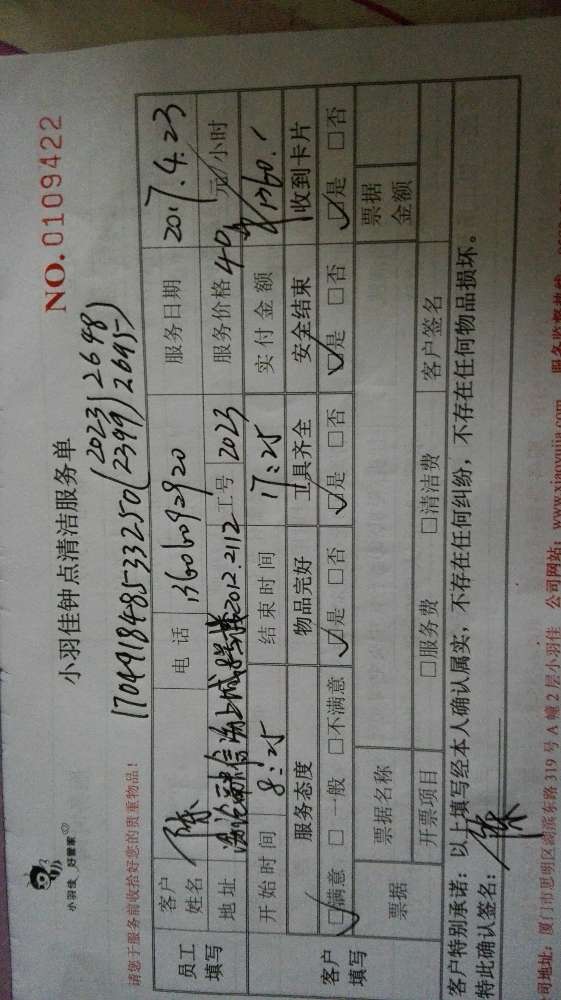 小羽佳 好管家
小羽佳钟点清洁服务单
NO.0109422
请您于服务前收拾好您的贵重物品!
170491848533250(2023/2648
2399/2645)
员工填写
客户姓名 陈 电话 13606092920 服务日期 2017.4.23
地址 海上城 2012.2112 工号 2023 服务价格 40元/小时
客户填写
开始时间 8:25 结束时间 17:25 实付金额 1360.1
服务态度 物品完好 工具齐全 安全结束 收到卡片
☑满意 □一般 □不满意 ☑是 □否 ☑是 □否 ☑是 □否 ☑是 □否
票据 票据名称 票据金额
开票项目 □服务费 □清洁费 客户签名
客户特别承诺:以上填写经本人确认属实,不存在任何纠纷,不存在任何物品损坏。
特此确认签名:陈
司地址:厦门市思明区湖滨东路319号A幢2层小羽佳 公司网站:www.xiaoyujia.com 服务监督热线